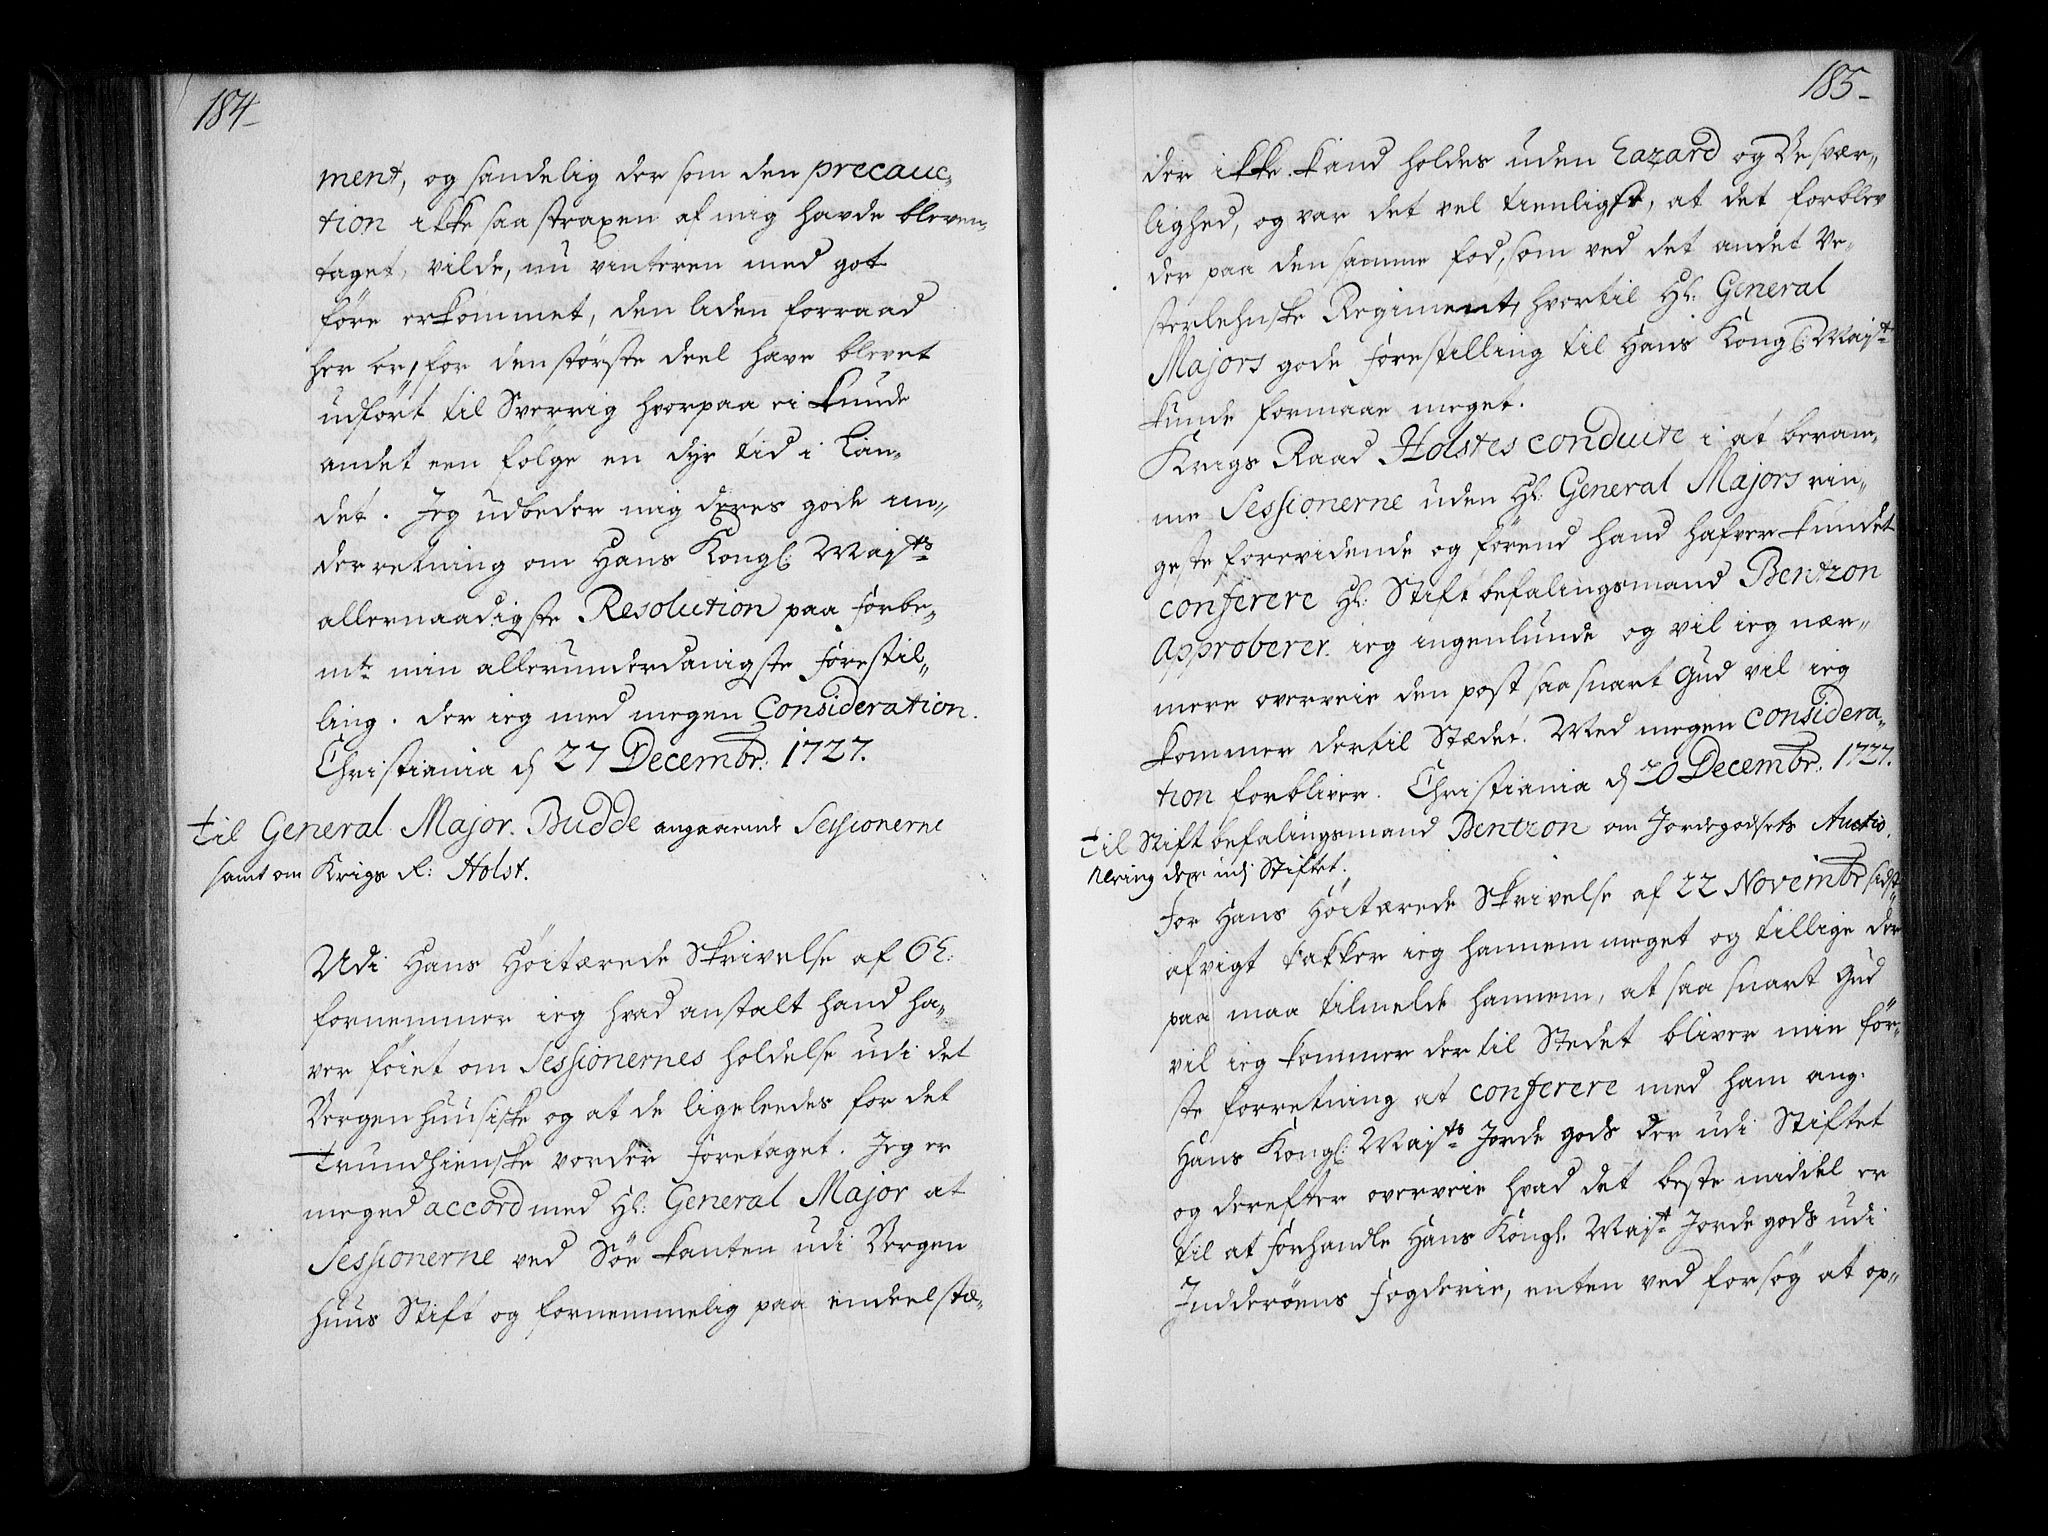 184
ment, og sandelig der som den precauc-
tion ikke saa straxen af mig havde bleven
taget, vilde, nu vinteren med got
före erkommet, den liden forraad
her er, for den störste deel have blevet
udfört til Sverrig hvorpaa ei kunde
andet een fölge en dyr tid i Lan-
det. Jeg udbeder mig deres gode un-
derretning om Hans Kongl: Maysts
allernaadigste Resolution paa forbe-
mte min allerunderdanigste forestil-
ling. der ieg med megen Consideration.
Christiania d 27 Decembr: 1727.
til General Major. Budde angaaende Sessionerne
samt om Krigs R: Holst.
Udi Hans Höitærede Skrivelse af 6t:
fornemmer ieg hvad anstalt hand ha-
ver föiet om Sessionernes holdelse udi det
Bergenhuusiske og at de ligeleedes for det
Trundhienske vorder foretaget. Jeg er
meged accord med Hl: General Major at
Sessionerne ved Söe kanten udi Bergen
huus Stift og fornemmelig paa endeel stæ-
185
der ikke kand holdes uden Hazard og Besvær-
lighed, og var det vel tienligst, at det forblev
der paa den samme fod, som ved det andet Ve-
sterlehnske Regiment, hvortil Hl: General
Majors gode forestilling til Hans Kongl: Mayst
kunde formaae meget.
Krigs Raad Holstes conduite i at beram-
me Sessionerne uden Hl: General Majors rin-
geste forevidende og förend hand hafver kundet
conferere Hl: Stiftbefalingsmand Bentzon
approberer ieg ingenlunde og vil ieg nær-
mere overveie den post saa snart Gud vil ieg
kommer dertil Stædet. Med megen considera-
tion forbliver. Christiania d 20 Decembr: 1727.
til Stiftbefalingsmand Bentzon om Jordegodsets Auctio-
nering der udj Stiftet.
For Hans Höitærede Skrivelse af 22 Novembr sidst
afvigt takker ieg hannem meget og tillige der
paa maa tilmelde hannem, at saa snart Gud
vil ieg kommer der til Stedet bliver min för-
ste forretning at conferere med ham ang.
Hans Kongl: Maysts Jorde gods der udi Stiftet
og derefter overveie hvad det beste middel er
til at forhandle Hans Kongl. Mayst Jorde gods udi
Indderöens fogderie, enten ved forsög at op-